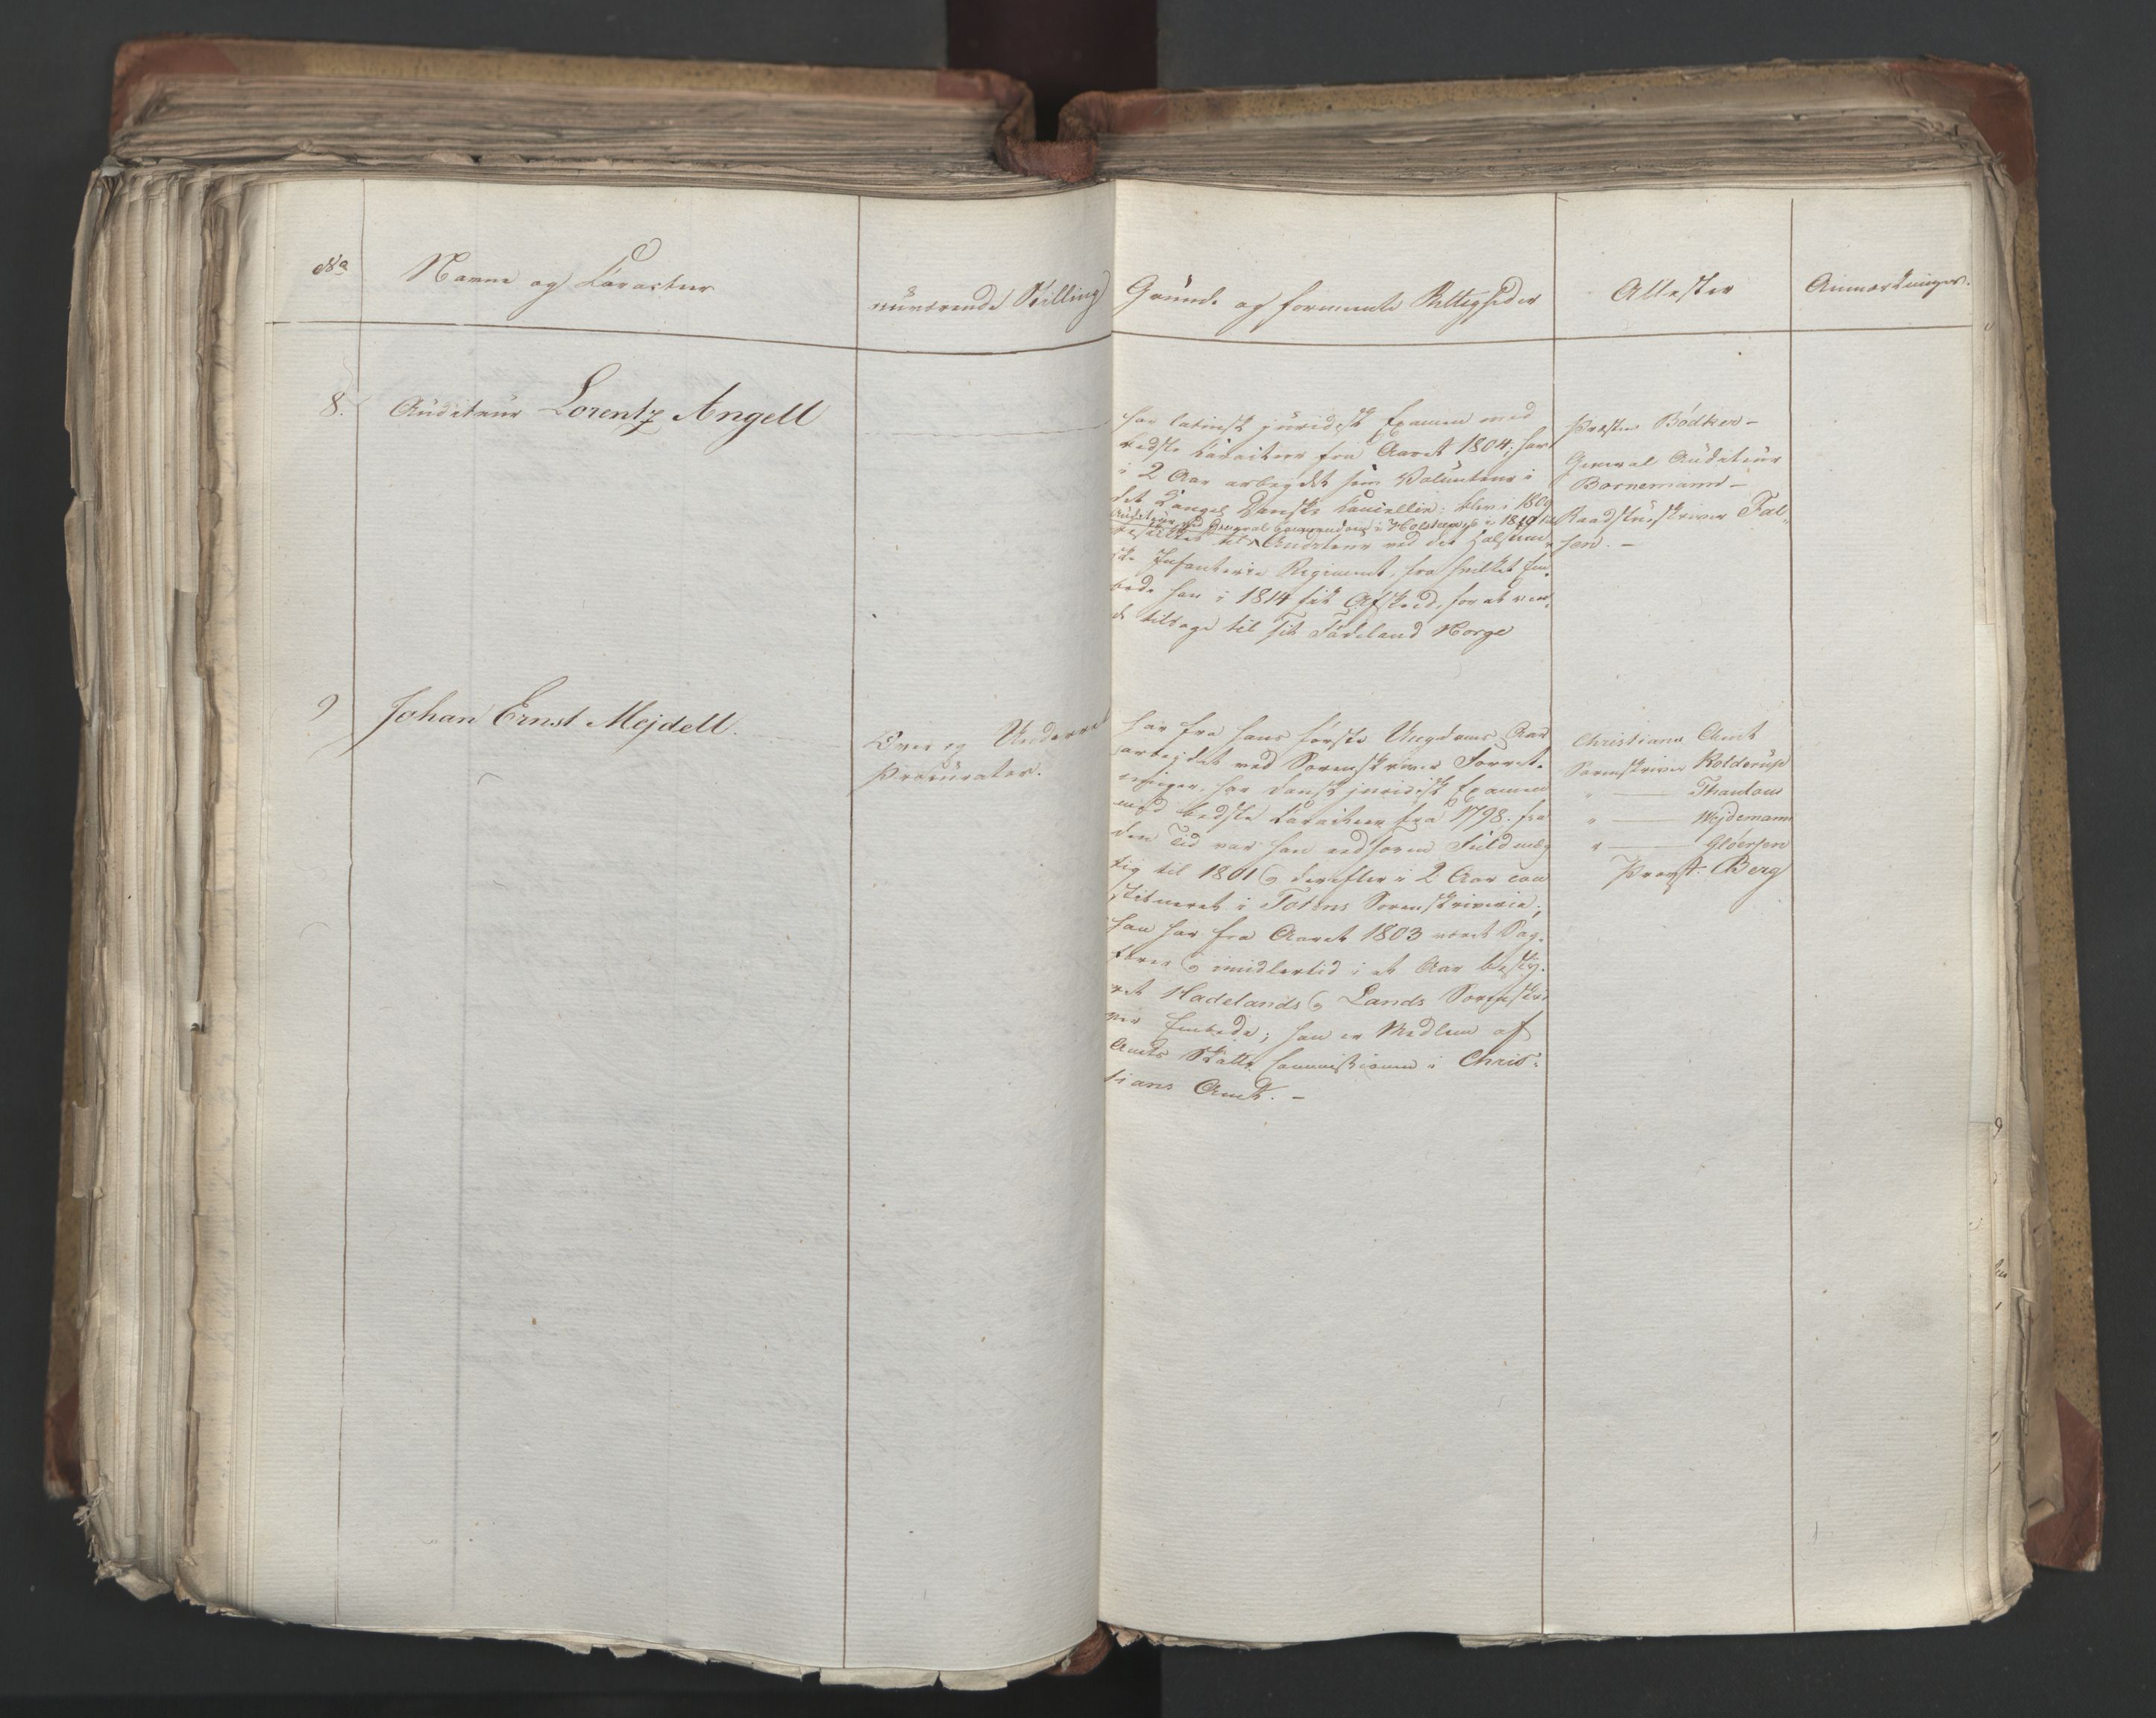 No
Navne og Caracteer
nuværende Stilling
Grunde og formeente Rettigheder
Attester
Anmærkninger.
8.
Auditeur Lorentz Angell
har latinsk juridisk Examen med
bedste Caracteer fra Aaret 1804; har
i 2 Aar arbejdet som Volunteur i
det Danske Cancellie; blev i 1809
Auditeur ved General Commandoen i Holsteen, i 1810
Auditeur ved det Holsteen
ske Infanterie Regiment, fra hvilket Em
bede han i 1814 fik Afskeed, for at ven
de tilbage til sit Fødeland Norge
Præsten Bødker -
General Auditeur
Bornemann -
Raadstueskriver Fal
sen. -
9
Johan Ernst Mejdell.
Over og Underrets
Procurator.
har fra hans første Ungdoms Aar
arbejdet ved Sorenskriver Forret-
ninger, har dansk juridisk Examen
med bedste Caracteer fra 1798. fra
den Tid var han edsvoren Fuldmæg
tig til 1801 og derefter i 2 Aar con
stitueret i Totens Sorenskriverie;
han har fra Aaret 1803 været Sag-
fører og imidlertid i et Aar besty-
ret Hadelands og Lands Sorenskri
ver Embede; han er Medlem af
Amts Skatte Commissionen i Chris-
tians Amt. -
Christians Amt
Sorenskriver Kolderup
" — Thaulow
" — Wejdemann
" — Gløersen
Provst Berg